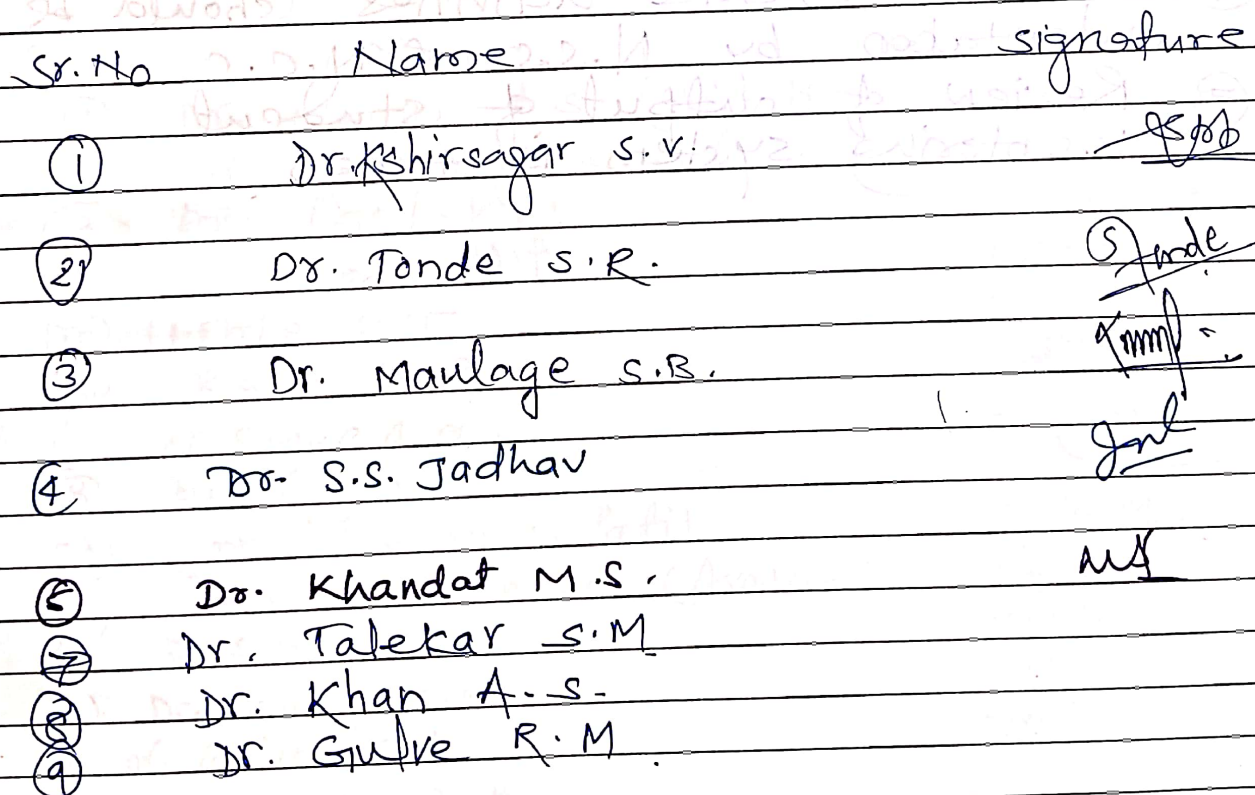 Sr. No Name signature
① Dr. Kshirsagar S. V.
② Dr. Tonde S. R. S Tonde
③ Dr. Maulage S. B.
④ Dr. S.S. Jadhav
⑤ Dr. Khandat M. S.
⑦ Dr. Talekar S. M
⑧ Dr. Khan A. S.
⑨ Dr. Gulve R. M.